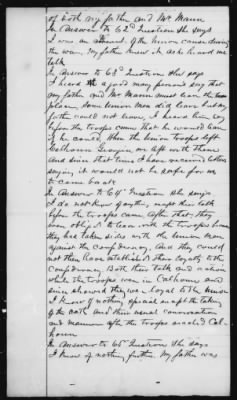 of both my father and Mr Mann
In Answer to 62d Question she says
I was an adherent of the Union Cause during
the war. My father knew it. heard me
talk
In Answer to 63d Question she says
I heard a good many persons say that
my father and Mr Mann must leave the
place. Some Union Men did leave but my
father could not leave. I heard him say
before the troops came that he would leave
if he could. When the Union troops left
Calhoun Georgia we left with them
And since that time I have received letters
saying it would not be safe for me
to come back
In Answer to 64th Question she says
I do not know of anything except their talk
before the troops came. After that, they
were obliged to leave with the troops because
they had taken sides with the Union Men
against the confederacy. And they could
not then have established their loyalty to the
Confederacy. Both their talk and actions
while the troops were in Calhoun and
since showed they were loyal to the Union
I know of nothing special except the taking
of the oath and their usual conversation
and manner after the troops reached Cal-
houn
In Answer to 65th Question she says
I know of nothing further. My father was